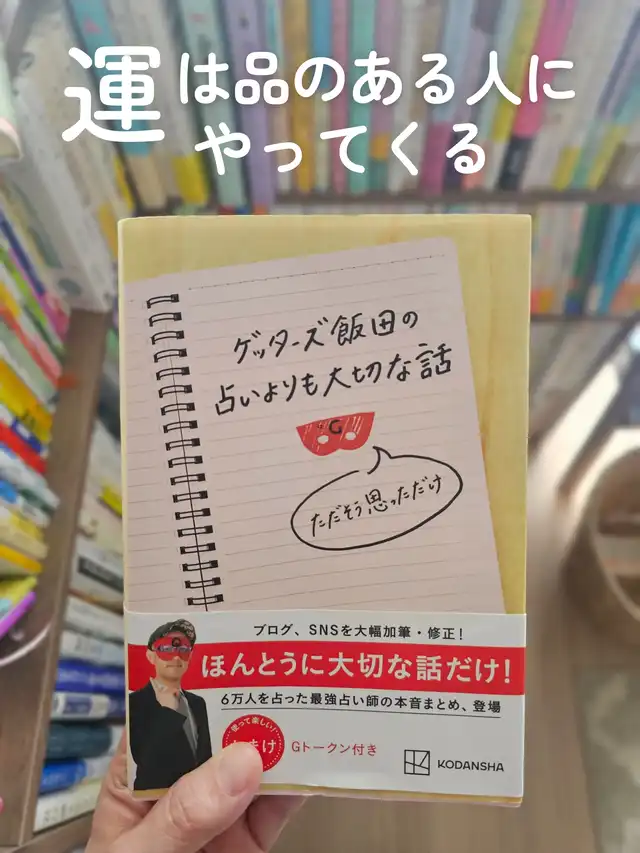 運は品のある人に
やってくる
ゲッターズ飯田の
占いよりも大切な話
G
ただそう思っただけ
ブログ、SNSを大幅加筆・修正！
ほんとうに大切な話だけ！
6万人を占った最強占い師の本音まとめ、登場
使って楽しい！
Gトークン付き
KODANSHA